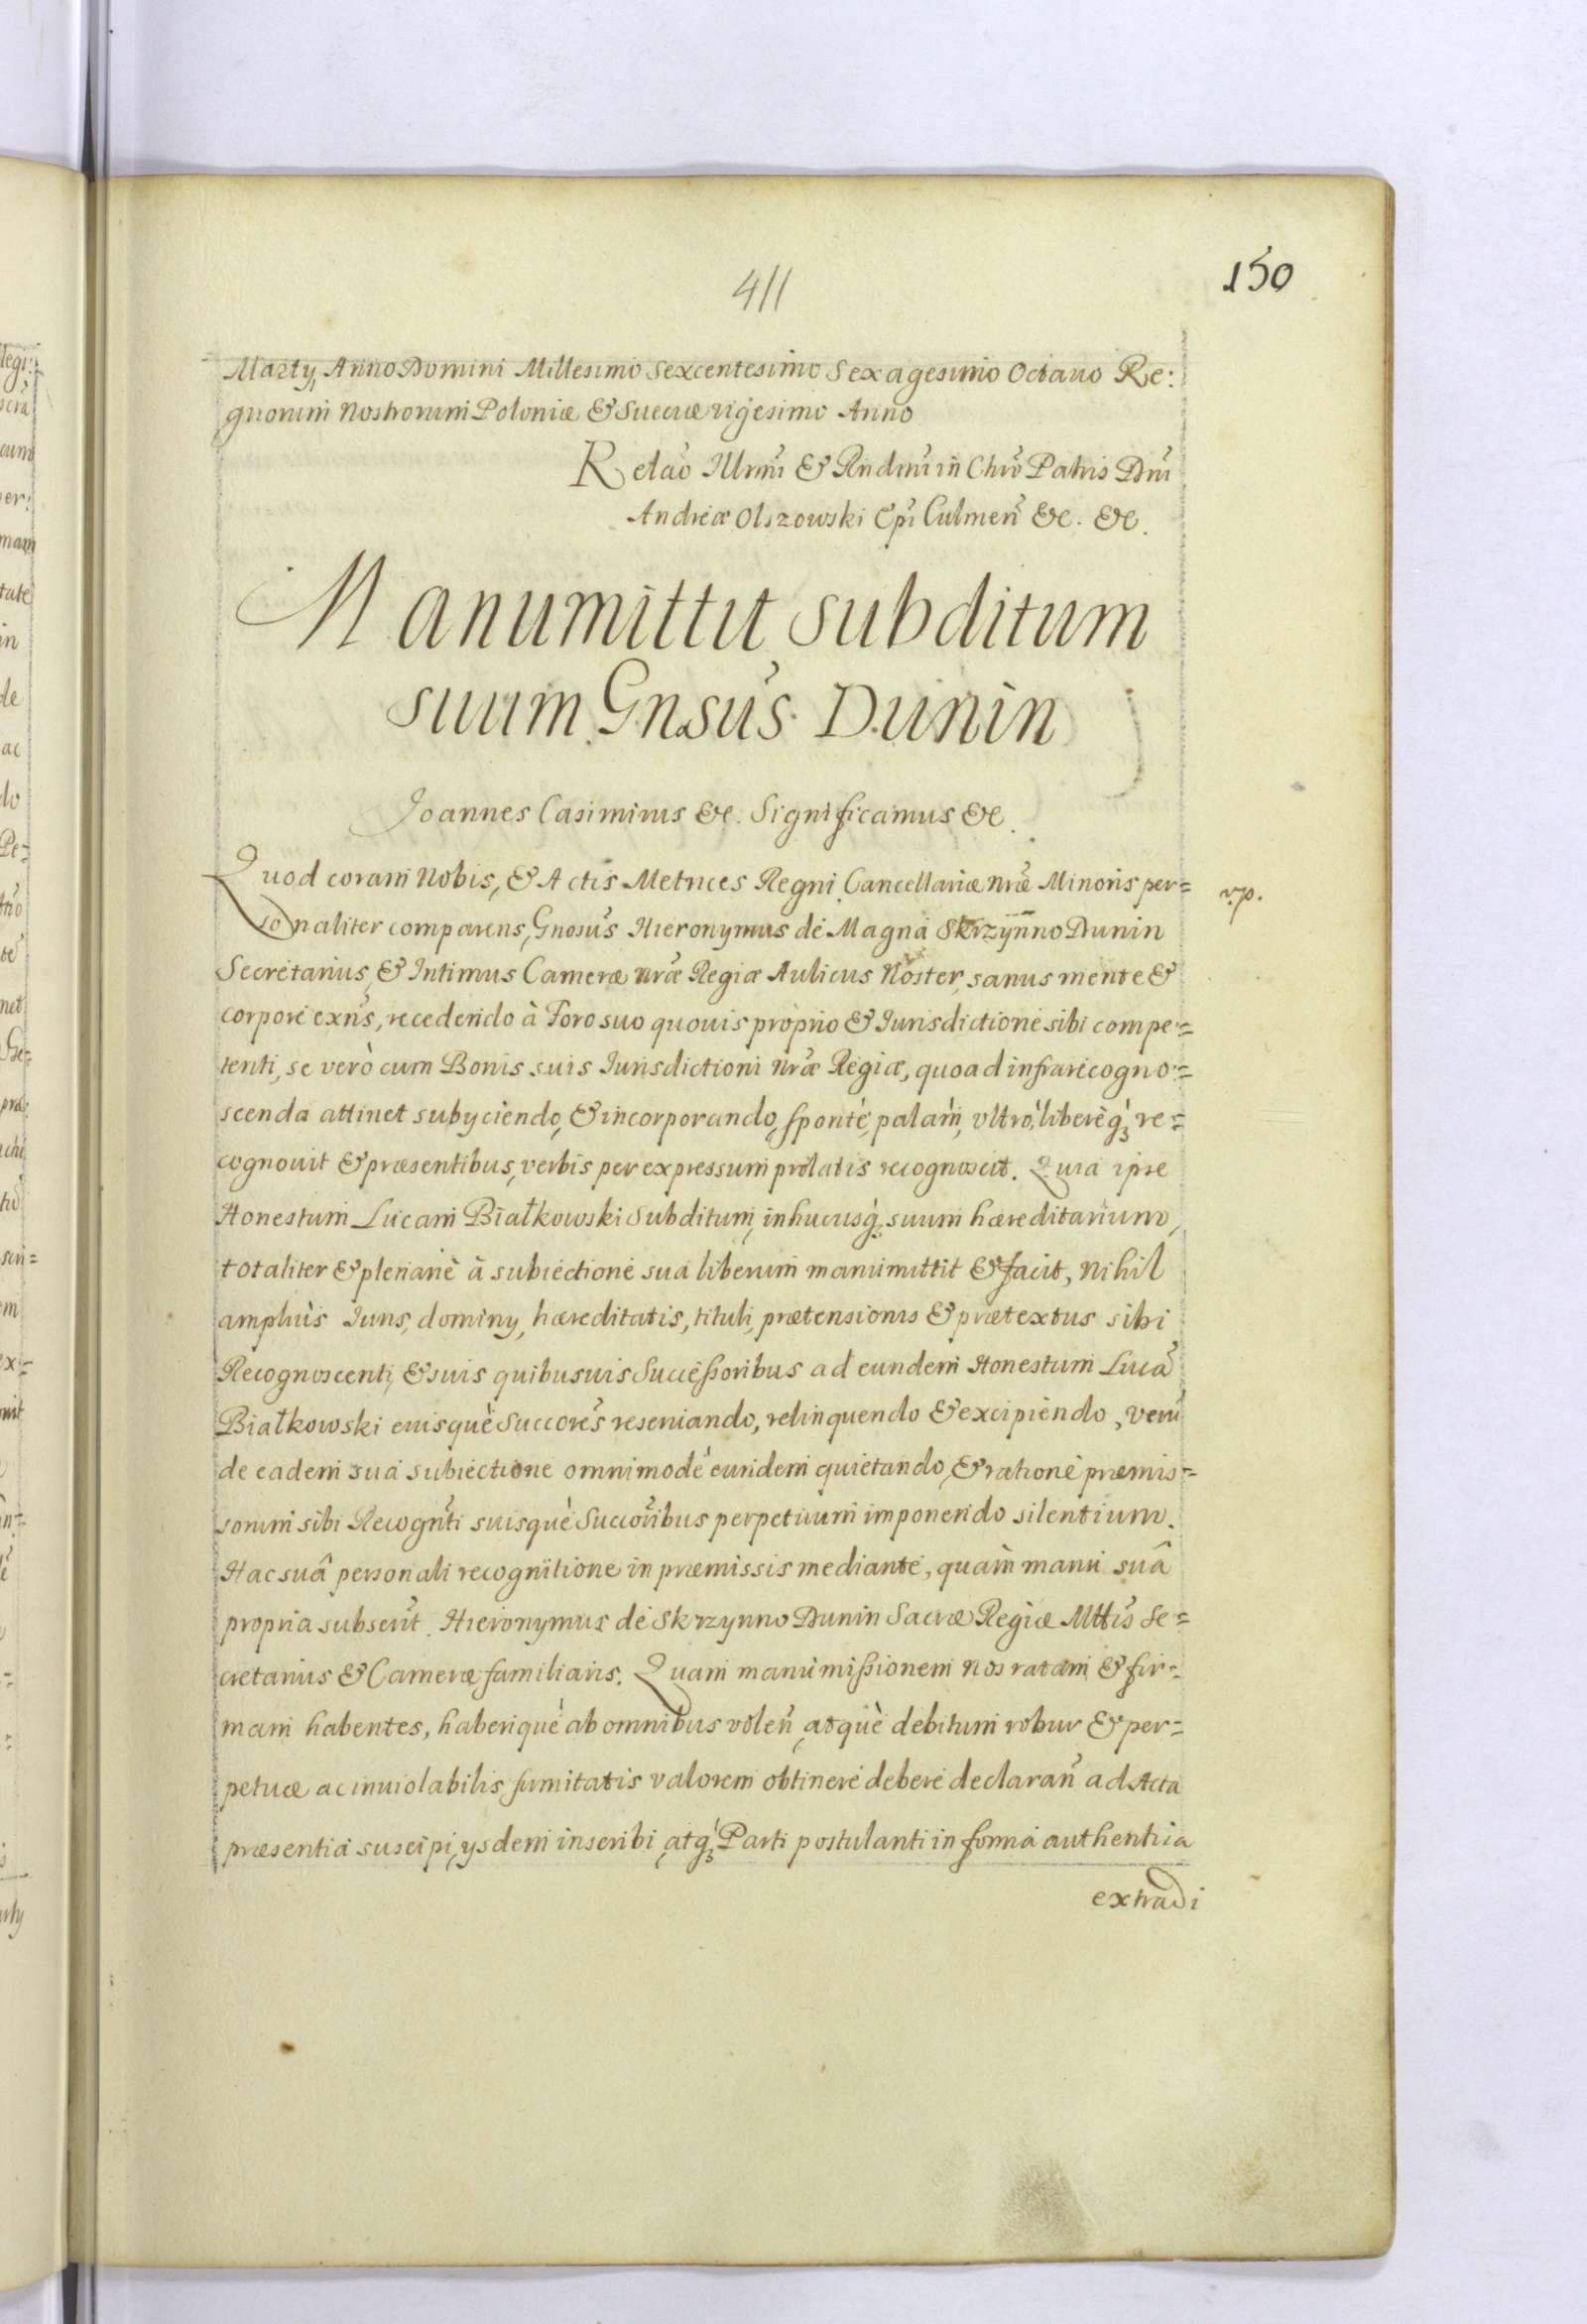 411
150
Martÿ, Anno Domini Millesimo Sexcentesimo Sexagesimo Octauo Re:
gnorum Nostrorum Poloniæ & Sueciæ vigesimo Anno
Relao͂ Illrmi͂ & Rndmi͂ in Chro͂ Patris Dni͂
Andreæ Olszowski Epi͂ Culmen͂ &c. &c.
Manumittit subditum
suum Gnsus͂ Dunin
Joannes Casimirus &c. Significamus &c.
Quod coram Nobis, & Actis Metrices Regni Cancellariæ nr͂æ Minoris per=
sonaliter comparens, Gnosus͂ Hieronymus de Magna Skrzynno Dunin
Secretarius, & Intimus Cameræ nr͂æ Regiæ Aulicus Noster, sanus mente &
corpore exns͂, recedendo à Foro suo quouis proprio & Iurisdictione sibi compe=
tenti, se verò cum Bonis suis Iurisdictioni nr͂æ Regiæ, quoad infrarecogno=
scenda attinet subÿciendo, & incorporando, sponte, palam, vltrò, liberèqꝫ re=
cognouit & præsentibus, verbis per expressum prolatis recognoscit. Quia ipse
Honestum Lucam Białkowski Subditum, inhucusqꝫ suum hæreditarium,
totaliter & plenariè à subiectione sua liberum manumittit & facit, Nihil
ampliùs Iuris, dominÿ, hæreditatis, tituli, prætensionis & prætextus sibi
Recognoscenti, & suis quibusuis Successoribus ad eundem Honestum Luca͂
Białkowski eiusque Succores͂ reseruando, relinquendo & excipiendo, Veru͂
de eadem sua subiectione omnimode eundem quietando, & ratione præmis=
sorum sibi Recogn͂ti suisque Succor͂ibus perpetuum imponendo silentium.
Hac suâ personali recognitione in præmissis mediante, quam manu suâ
propria subscrit͂. Hieronymus de Skrzynno Dunin Sacræ Regiæ Mttis͂ Se=
cretarius & Cameræ familiaris. Quam manumissionem nos ratam & fir=
mam habentes, haberique ab omnibus volen͂, atque debitum robur & per=
petuæ ac inuiolabilis firmitatis valorem obtinere debere declaran͂ ad Acta
præsentia suscipi, ÿsdem inscribi, atqꝫ Parti postulanti in forma authentica
extradi